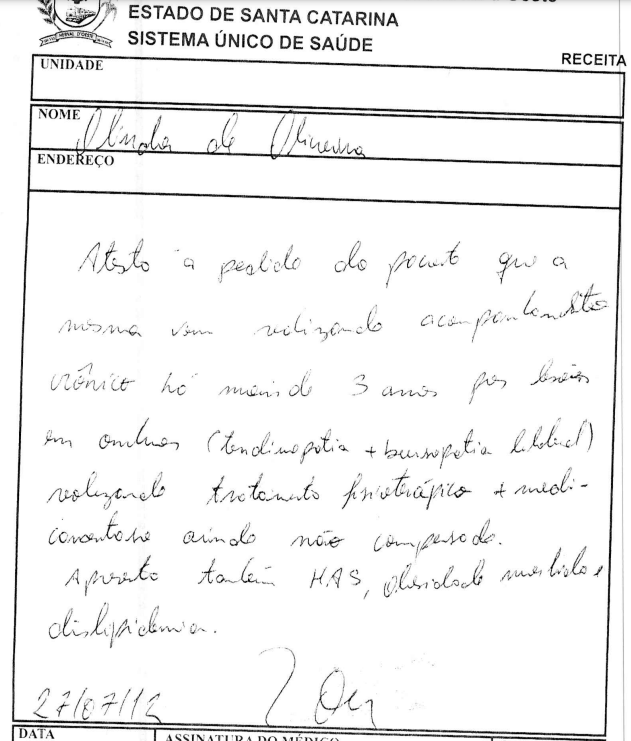 ESTADO DE SANTA CATARINA
SISTEMA ÚNICO DE SAÚDE
RECEITA
UNIDADE
NOME
Olinda de Oliveira
ENDEREÇO
Atesto a pedido da paciente que a
mesma vem realizando acompanhamento
crônico há mais de 3 anos por lesões
em ombros (tendinopatia + bursopatia bilateral)
realizando tratamento fisioterápico + medi-
camentoso ainda não compensado.
Apresenta também HAS, obesidade mórbida e
dislipidemia.
27/07/12
DATA
ASSINATURA DO MÉDICO